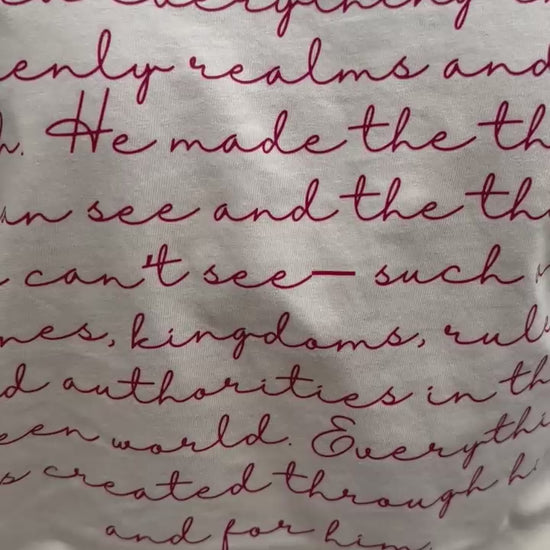 everything
enly realms and
h. He made the th
an see and the th
can't see— such
nes, kingdoms, rul
d authorities in th
een world. Everythi
s created through h
and for him